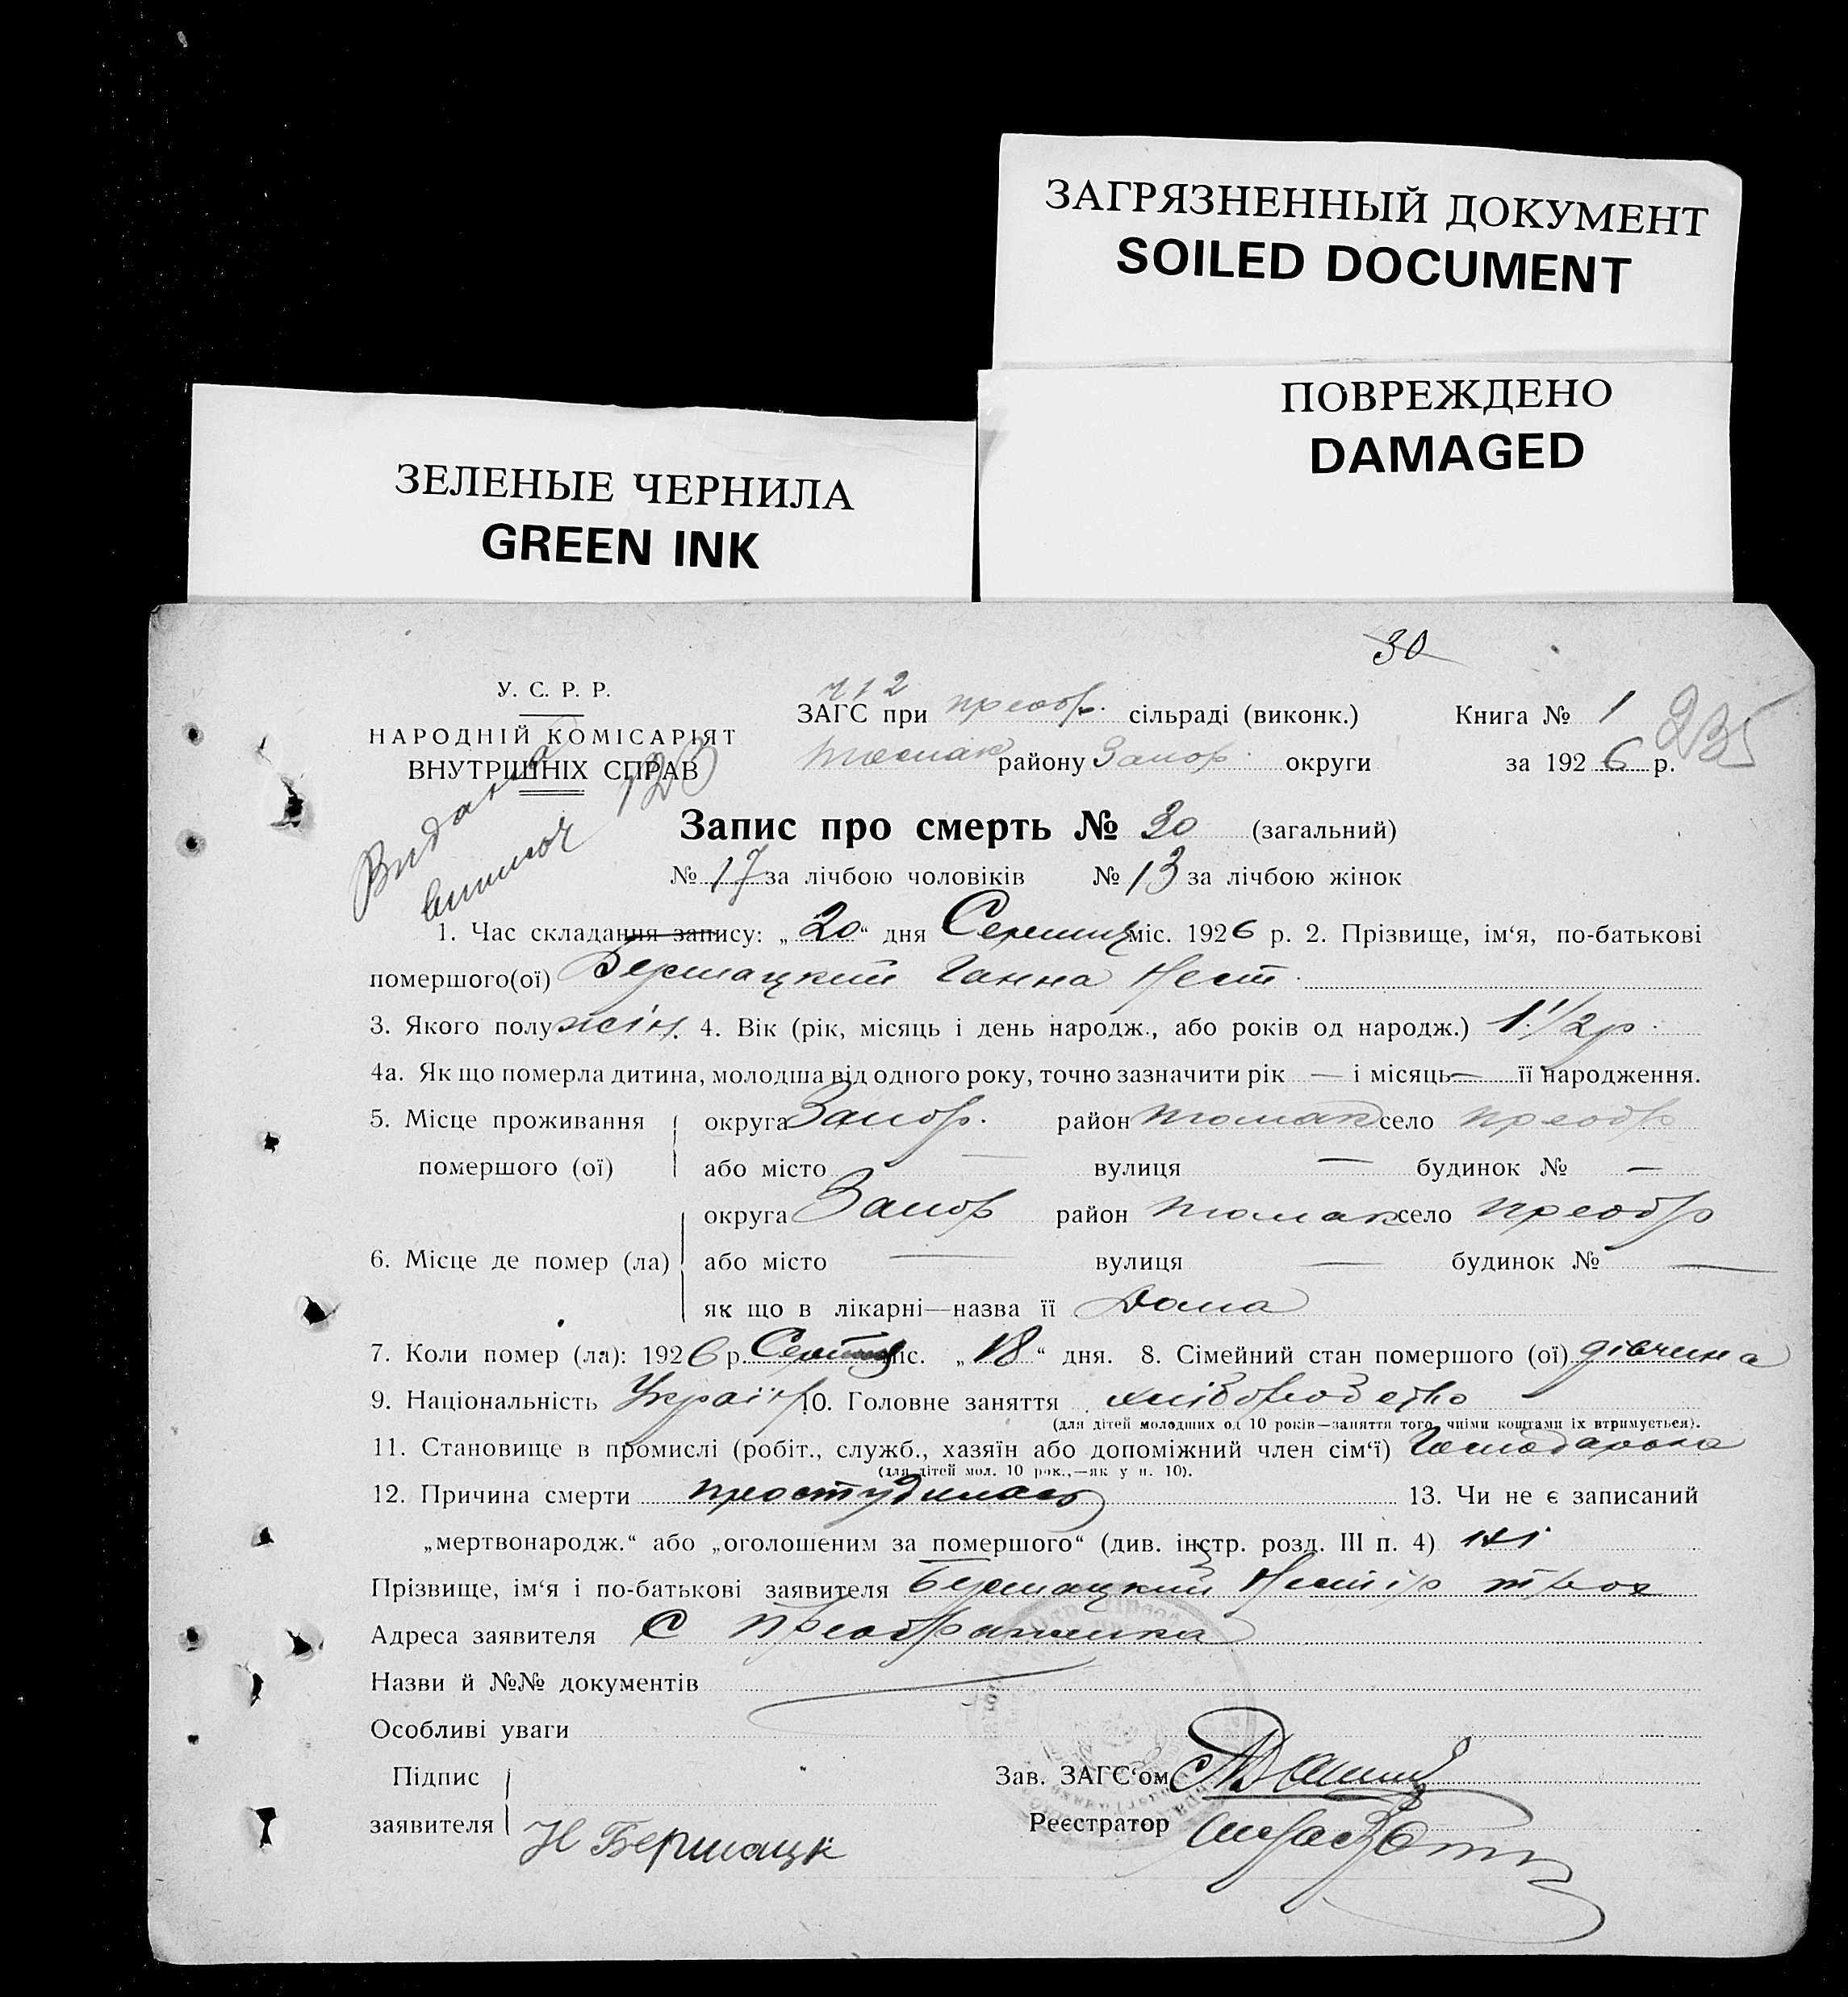 ЗАГРЯЗНЕННЫЙ ДОКУМЕНТ
SOILED DOCUMENT
ПОВРЕЖДЕНО
DAMAGED
ЗЕЛЕНЫЕ ЧЕРНИЛА
GREEN INK
30
У. С. Р. Р.
НАРОДНІЙ КОМІСАРІЯТ
ВНУТРІШНІХ СПРАВ
Видана
123
ЗАГС при преобр. сільраді (виконк.) Книга № 1 235
району Запор. округи за 1926 р.
Запис про смерть № 30 (загальний)
№ 17 за лічбою чоловіків № 13 за лічбою жінок
1. Час складання запису: „20“ дня міс. 1926 р. 2. Прізвище, ім‘я, по-батькові
помершого(ої) Ганна Нест.
3. Якого полу жін. 4. Вік (рік, місяць і день народж., або років од народж.) 1 1/2 р.
4а. Як що померла дитина, молодша від одного року, точно зазначити рік — і місяць — її народження.
5. Місце проживання округа Запор. район токмак село преобр
помершого (ої) або місто — вулиця — будинок № —
округа Запор район токмак село преобр
6. Місце де помер (ла) або місто — вулиця — будинок № —
як що в лікарні—назва її Дома
7. Коли помер (ла): 1926 р. міс. „18“ дня. 8. Сімейний стан помершого (ої) дівчина
9. Національність Україн 10. Головне заняття хліборобство
(для дітей молодших од 10 років—заняття того, чиїми коштами їх втримується).
11. Становище в промислі (робіт., служб., хазяїн або допоміжний член сім‘ї)
(для дітей мол. 10 рок.,—як у п. 10).
12. Причина смерти простудилась 13. Чи не є записаний
„мертвонародж.“ або „оголошеним за помершого“ (див. інстр. розд. III п. 4) ні
Прізвище, ім‘я і по-батькові заявителя Нестір
Адреса заявителя С Преображенка
Назви й №№ документів
Особливі уваги
Підпис
заявителя Н Бершацк
Зав. ЗАГС‘ом
Реєстратор